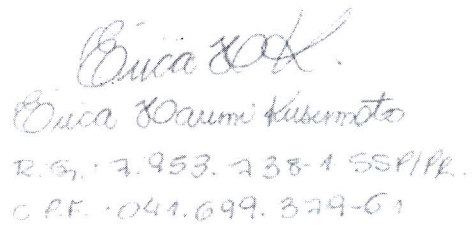 Érica H K.
Érica Harumi Kusumoto
R.G. 7.953.738-1 SSP/PR.
C.P.F. 041.699.379-61